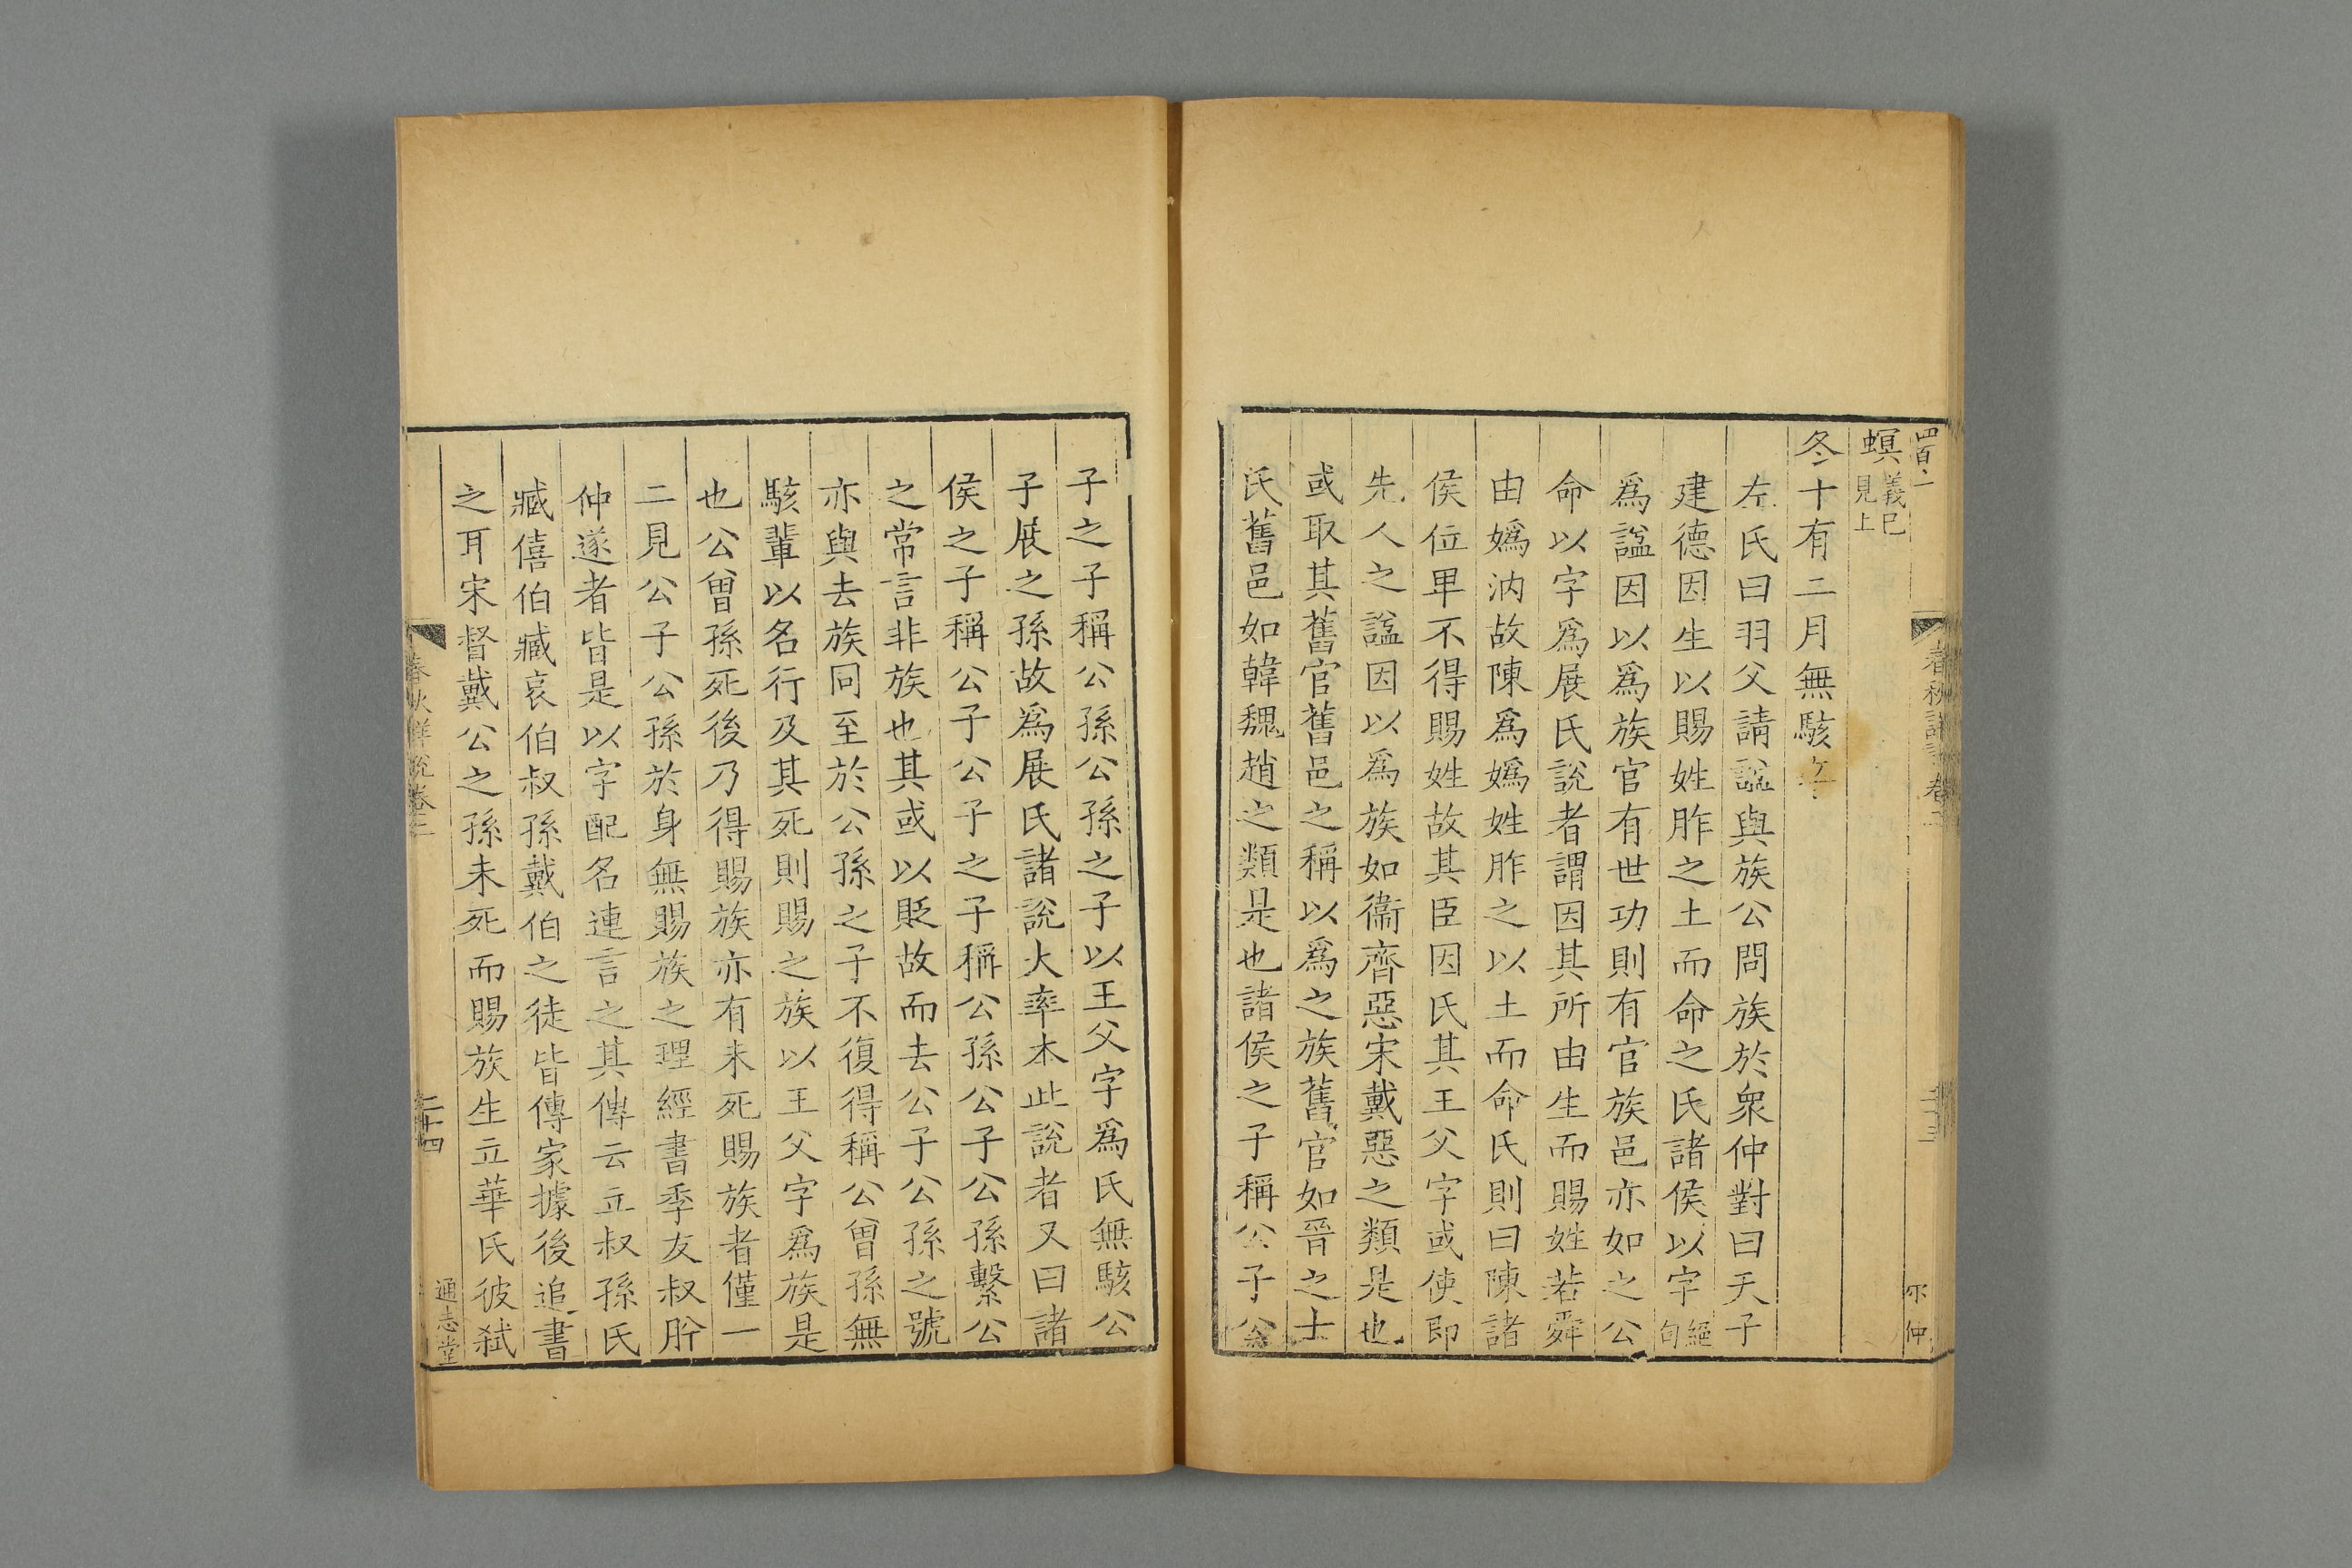 螟義已見上
冬十有二月無駭卒
左氏曰羽父請諡與族公問族於衆仲對曰天子
建德因生以賜姓胙之土而命之氏諸侯以字絕句
爲諡因以爲族官有世功則有官族邑亦如之公
命以字爲展氏說者謂因其所由生而賜姓若舜
由嬀汭故陳爲嬀姓胙之以土而命氏則曰陳諸
侯位卑不得賜姓故其臣因氏其王父字或使即
先人之諡因以爲族如衞齊惡宋戴惡之類是也
或取其舊官舊邑之稱以爲之族舊官如晉之士
氏舊邑如韓魏趙之類是也諸侯之子稱公子公
子之子稱公孫公孫之子以王父字爲氏無駭公
子展之孫故爲展氏諸說大率本此說者又曰諸
侯之子稱公子公子之子稱公孫公子公孫繫公
之常言非族也其或以貶故而去公子公孫之號
亦與去族同至於公孫之子不復得稱公曾孫無
駭輩以名行及其死則賜之族以王父字爲族是
也公曾孫死後乃得賜族亦有未死賜族者僅一
二見公子公孫於身無賜族之理經書季友叔肸
仲遂者皆是以字配名連言之其傳云立叔孫氏
臧僖伯臧哀伯叔孫戴伯之徒皆傳家據後追書
之耳宋督戴公之孫未死而賜族生立華氏彼弑
春秋詳說卷三
二十四
通志堂